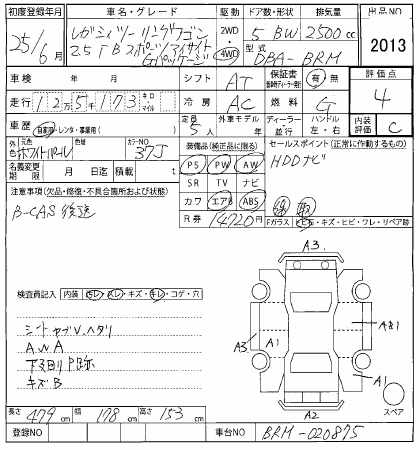 初度登録年月 車名・グレード 駆動 ドア数・形状 排気量 出品NO
25/6月 レガシィツーリングワゴン 2WD・4WD 5 BW 2500cc 2013
2.5 I B スポーツ アイサイト 型式
Gパッケージ DBA-BRM
車検 年 月 シフト AT 保証書 有・無 評価点
走行 125173 キロ マイル 冷房 AC 燃料 G 4
車歴 自家用・レンタ・事業用( ) 定員 5人 外車モデル年式 ディーラー 並行 ハンドル 左・右 内装評価 C
外色 元色 ホワイトパール 色替 カラーNO 37J 装備品(純正品に限る) セールスポイント(正常に作動するもの)
名義変更期限 月 日迄 積載 t PS PW AW HDDナビ
注意事項(欠品・修復・不具合箇所および状態) SR TV ナビ
B-CAS後送 カワ エアB ABS
R券 14720円 Fガラス ヒビ石・キズ・ヒビ・ワレ・リペア跡
A3
検査員記入 内装 汚レ・スレ・キズ・キレ・コゲ・穴
シート ヘタリ
AWA
キズB
A3 A1
A1
A2
スペア
長さ 479cm 幅 178cm 高さ 153cm
登録NO 車台NO BRM-020875